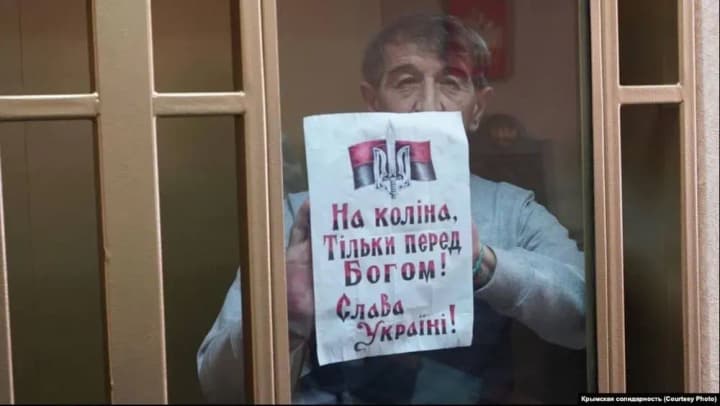 На коліна,
Тільки перед
Богом!
Слава
Україні!
Крымская солидарность (Courtesy Photo)